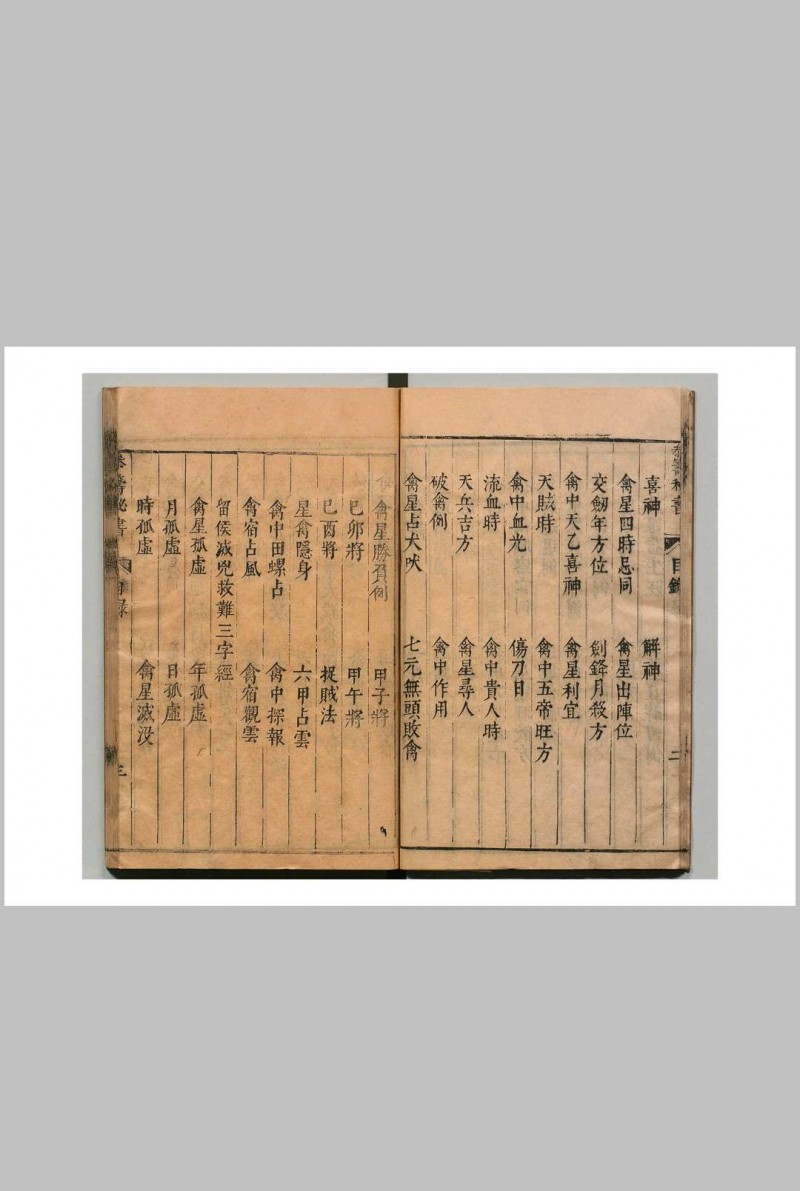 喜神 解神
禽星四時忌同 禽星出陣位
交劒年方位 劍鋒月殺方
禽中天乙喜神 禽星利宜
天賊時 禽中五帝旺方
禽中血光 傷刀日
流血時 禽中貴人時
天兵吉方 禽星尋人
破禽例 禽中作用
禽星占犬吠 七元無頭敗禽
禽星勝負例 甲子將
巳卯將 甲午將
巳酉將 捉賊法
星禽隱身 六甲占雲
禽中田螺占 禽中探報
禽宿占風 禽宿觀雲
留侯滅兇救難三字經
禽星孤虛 年孤虛
月孤虛 日孤虛
時孤虛 禽星滅没
秘書 目錄 三